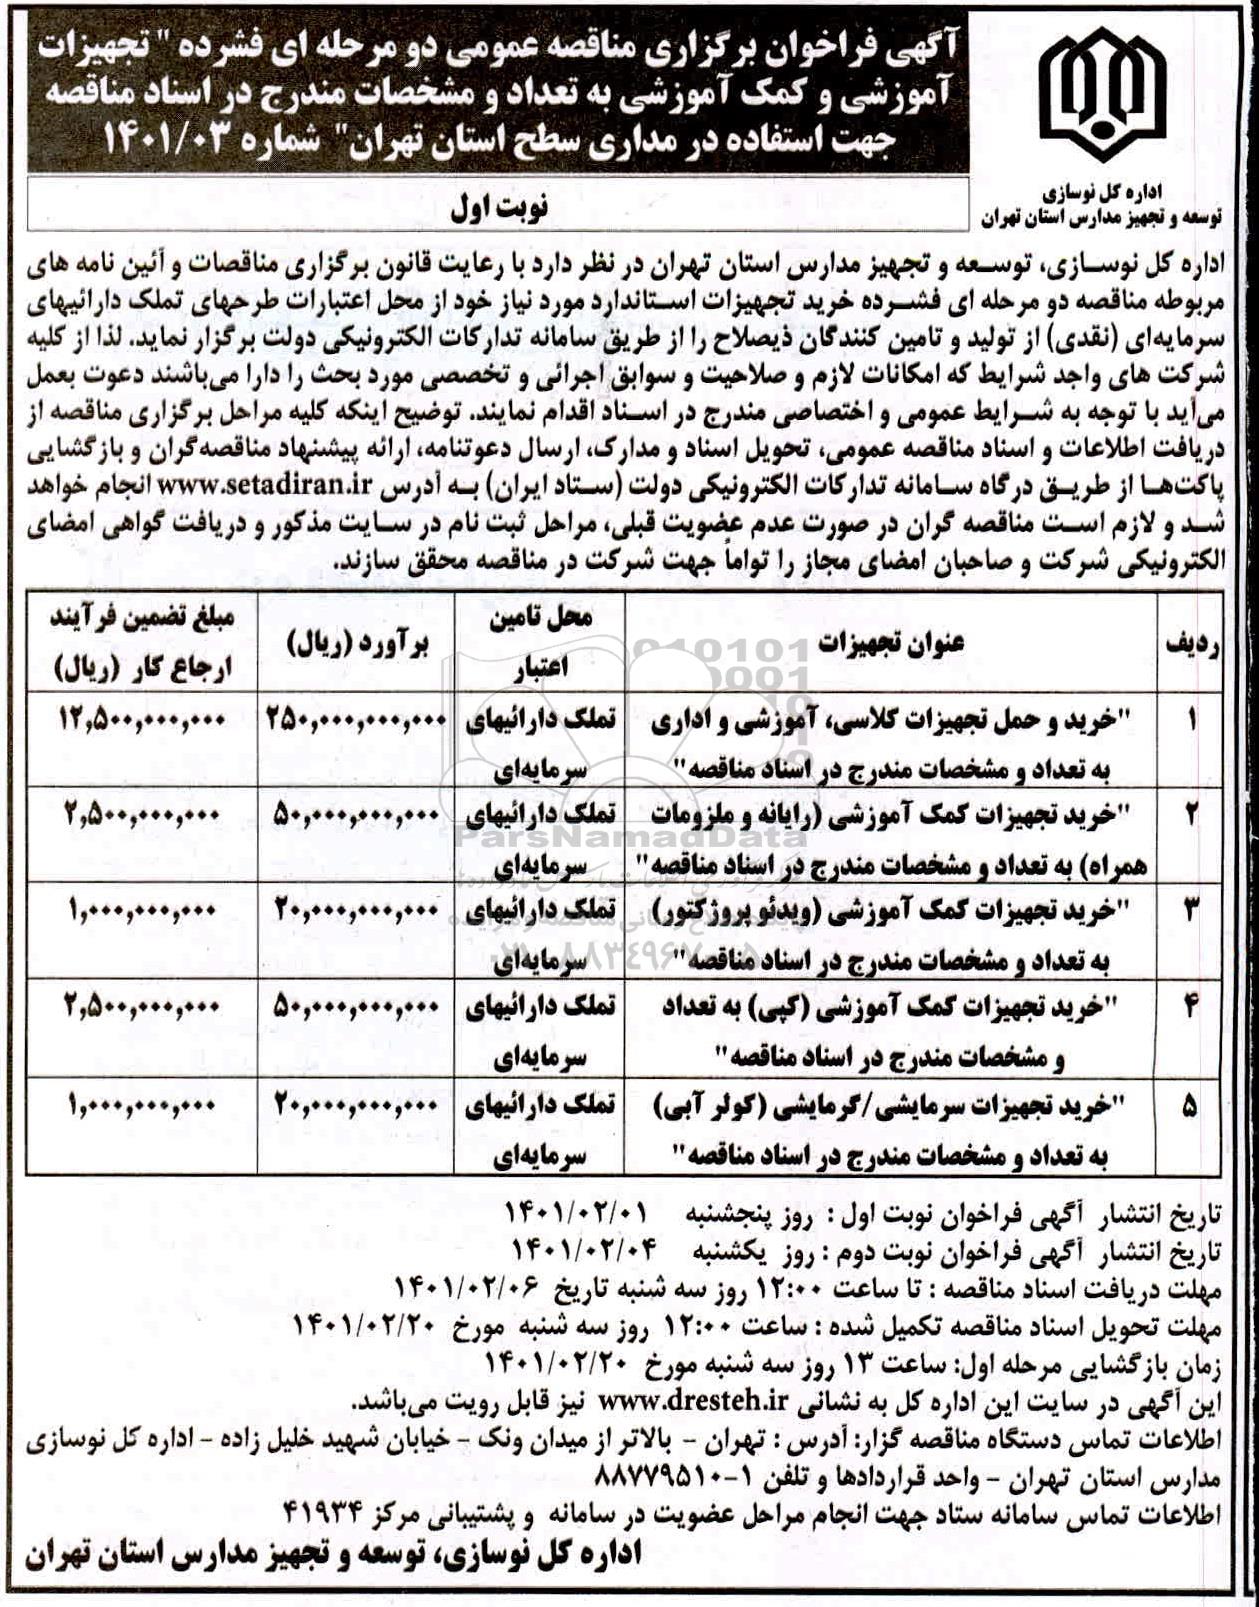 آگهی فراخوان برگزاری مناقصه عمومی دو مرحله ای فشرده " تجهیزات
آموزشی و کمک آموزشی به تعداد و مشخصات مندرج در اسناد مناقصه
جهت استفاده در مداری سطح استان تهران" شماره ۱۴۰۱/۰۳
اداره کل نوسازی
توسعه و تجهیز مدارس استان تهران
نوبت اول
اداره کل نوسازی، توسعه و تجهیز مدارس استان تهران در نظر دارد با رعایت قانون برگزاری مناقصات و آئین نامه های
مربوطه مناقصه دو مرحله ای فشرده خرید تجهیزات استاندارد مورد نیاز خود از محل اعتبارات طرحهای تملک دارائیهای
سرمایه‌ای (نقدی) از تولید و تامین کنندگان ذیصلاح را از طریق سامانه تدارکات الکترونیکی دولت برگزار نماید. لذا از کلیه
شرکت های واجد شرایط که امکانات لازم و صلاحیت و سوابق اجرائی و تخصصی مورد بحث را دارا می‌باشند دعوت بعمل
می‌آید با توجه به شرایط عمومی و اختصاصی مندرج در اسناد اقدام نمایند. توضیح اینکه کلیه مراحل برگزاری مناقصه از
دریافت اطلاعات و اسناد مناقصه عمومی، تحویل اسناد و مدارک، ارسال دعوتنامه، ارائه پیشنهاد مناقصه‌گران و بازگشایی
پاکت‌ها از طریق درگاه سامانه تدارکات الکترونیکی دولت (ستاد ایران) به آدرس www.setadiran.ir انجام خواهد
شد و لازم است مناقصه گران در صورت عدم عضویت قبلی، مراحل ثبت نام در سایت مذکور و دریافت گواهی امضای
الکترونیکی شرکت و صاحبان امضای مجاز را تواماً جهت شرکت در مناقصه محقق سازند.
ردیف عنوان تجهیزات محل تامین اعتبار برآورد (ریال) مبلغ تضمین فرآیند ارجاع کار (ریال)
۱ "خرید و حمل تجهیزات کلاسی، آموزشی و اداری تملک دارائیهای ۲۵۰,۰۰۰,۰۰۰,۰۰۰ ۱۲,۵۰۰,۰۰۰,۰۰۰
به تعداد و مشخصات مندرج در اسناد مناقصه" سرمایه‌ای
۲ "خرید تجهیزات کمک آموزشی (رایانه و ملزومات تملک دارائیهای ۵۰,۰۰۰,۰۰۰,۰۰۰ ۲,۵۰۰,۰۰۰,۰۰۰
همراه) به تعداد و مشخصات مندرج در اسناد مناقصه" سرمایه‌ای
۳ "خرید تجهیزات کمک آموزشی (ویدئو پروژکتور) تملک دارائیهای ۲۰,۰۰۰,۰۰۰,۰۰۰ ۱,۰۰۰,۰۰۰,۰۰۰
به تعداد و مشخصات مندرج در اسناد مناقصه" سرمایه‌ای
۴ "خرید تجهیزات کمک آموزشی (کپی) به تعداد تملک دارائیهای ۵۰,۰۰۰,۰۰۰,۰۰۰ ۲,۵۰۰,۰۰۰,۰۰۰
و مشخصات مندرج در اسناد مناقصه" سرمایه‌ای
۵ "خرید تجهیزات سرمایشی/گرمایشی (کولر آبی) تملک دارائیهای ۲۰,۰۰۰,۰۰۰,۰۰۰ ۱,۰۰۰,۰۰۰,۰۰۰
به تعداد و مشخصات مندرج در اسناد مناقصه" سرمایه‌ای
ParsNamadData
تاریخ انتشار آگهی فراخوان نوبت اول : روز پنجشنبه ۱۴۰۱/۰۲/۰۱
تاریخ انتشار آگهی فراخوان نوبت دوم : روز یکشنبه ۱۴۰۱/۰۲/۰۴
مهلت دریافت اسناد مناقصه : تا ساعت ۱۲:۰۰ روز سه شنبه تاریخ ۱۴۰۱/۰۲/۰۶
مهلت تحویل اسناد مناقصه تکمیل شده : ساعت ۱۲:۰۰ روز سه شنبه مورخ ۱۴۰۱/۰۲/۲۰
زمان بازگشایی مرحله اول: ساعت ۱۳ روز سه شنبه مورخ ۱۴۰۱/۰۲/۲۰
این آگهی در سایت این اداره کل به نشانی www.dresteh.ir نیز قابل رویت می‌باشد.
اطلاعات تماس دستگاه مناقصه گزار: آدرس : تهران - بالاتر از میدان ونک - خیابان شهید خلیل زاده - اداره کل نوسازی
مدارس استان تهران - واحد قراردادها و تلفن ۱-۸۸۷۷۹۵۱۰
اطلاعات تماس سامانه ستاد جهت انجام مراحل عضویت در سامانه و پشتیبانی مرکز ۴۱۹۳۴
اداره کل نوسازی، توسعه و تجهیز مدارس استان تهران